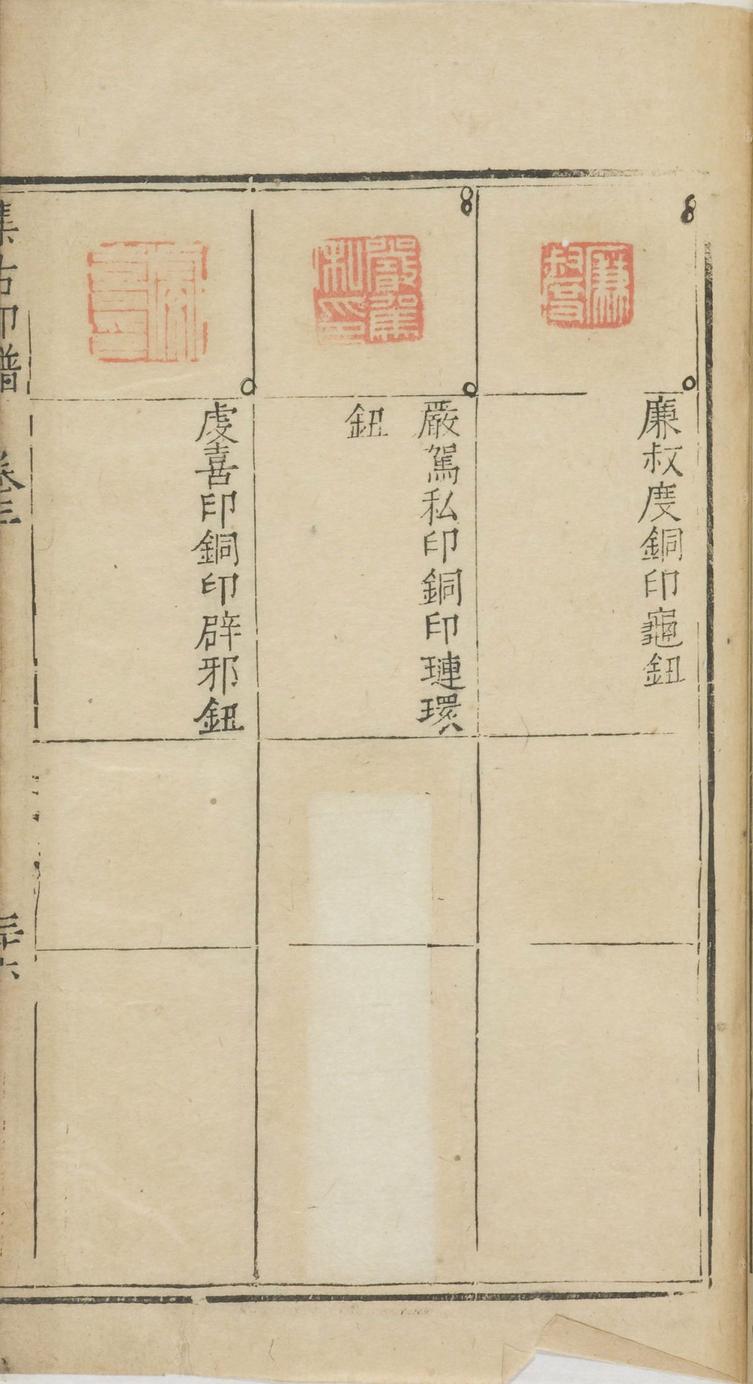 8
廉叔度銅印龜鈕
8
嚴駕私印銅印璉環
鈕
虔喜印銅印辟邪鈕
集古印譜
卷三